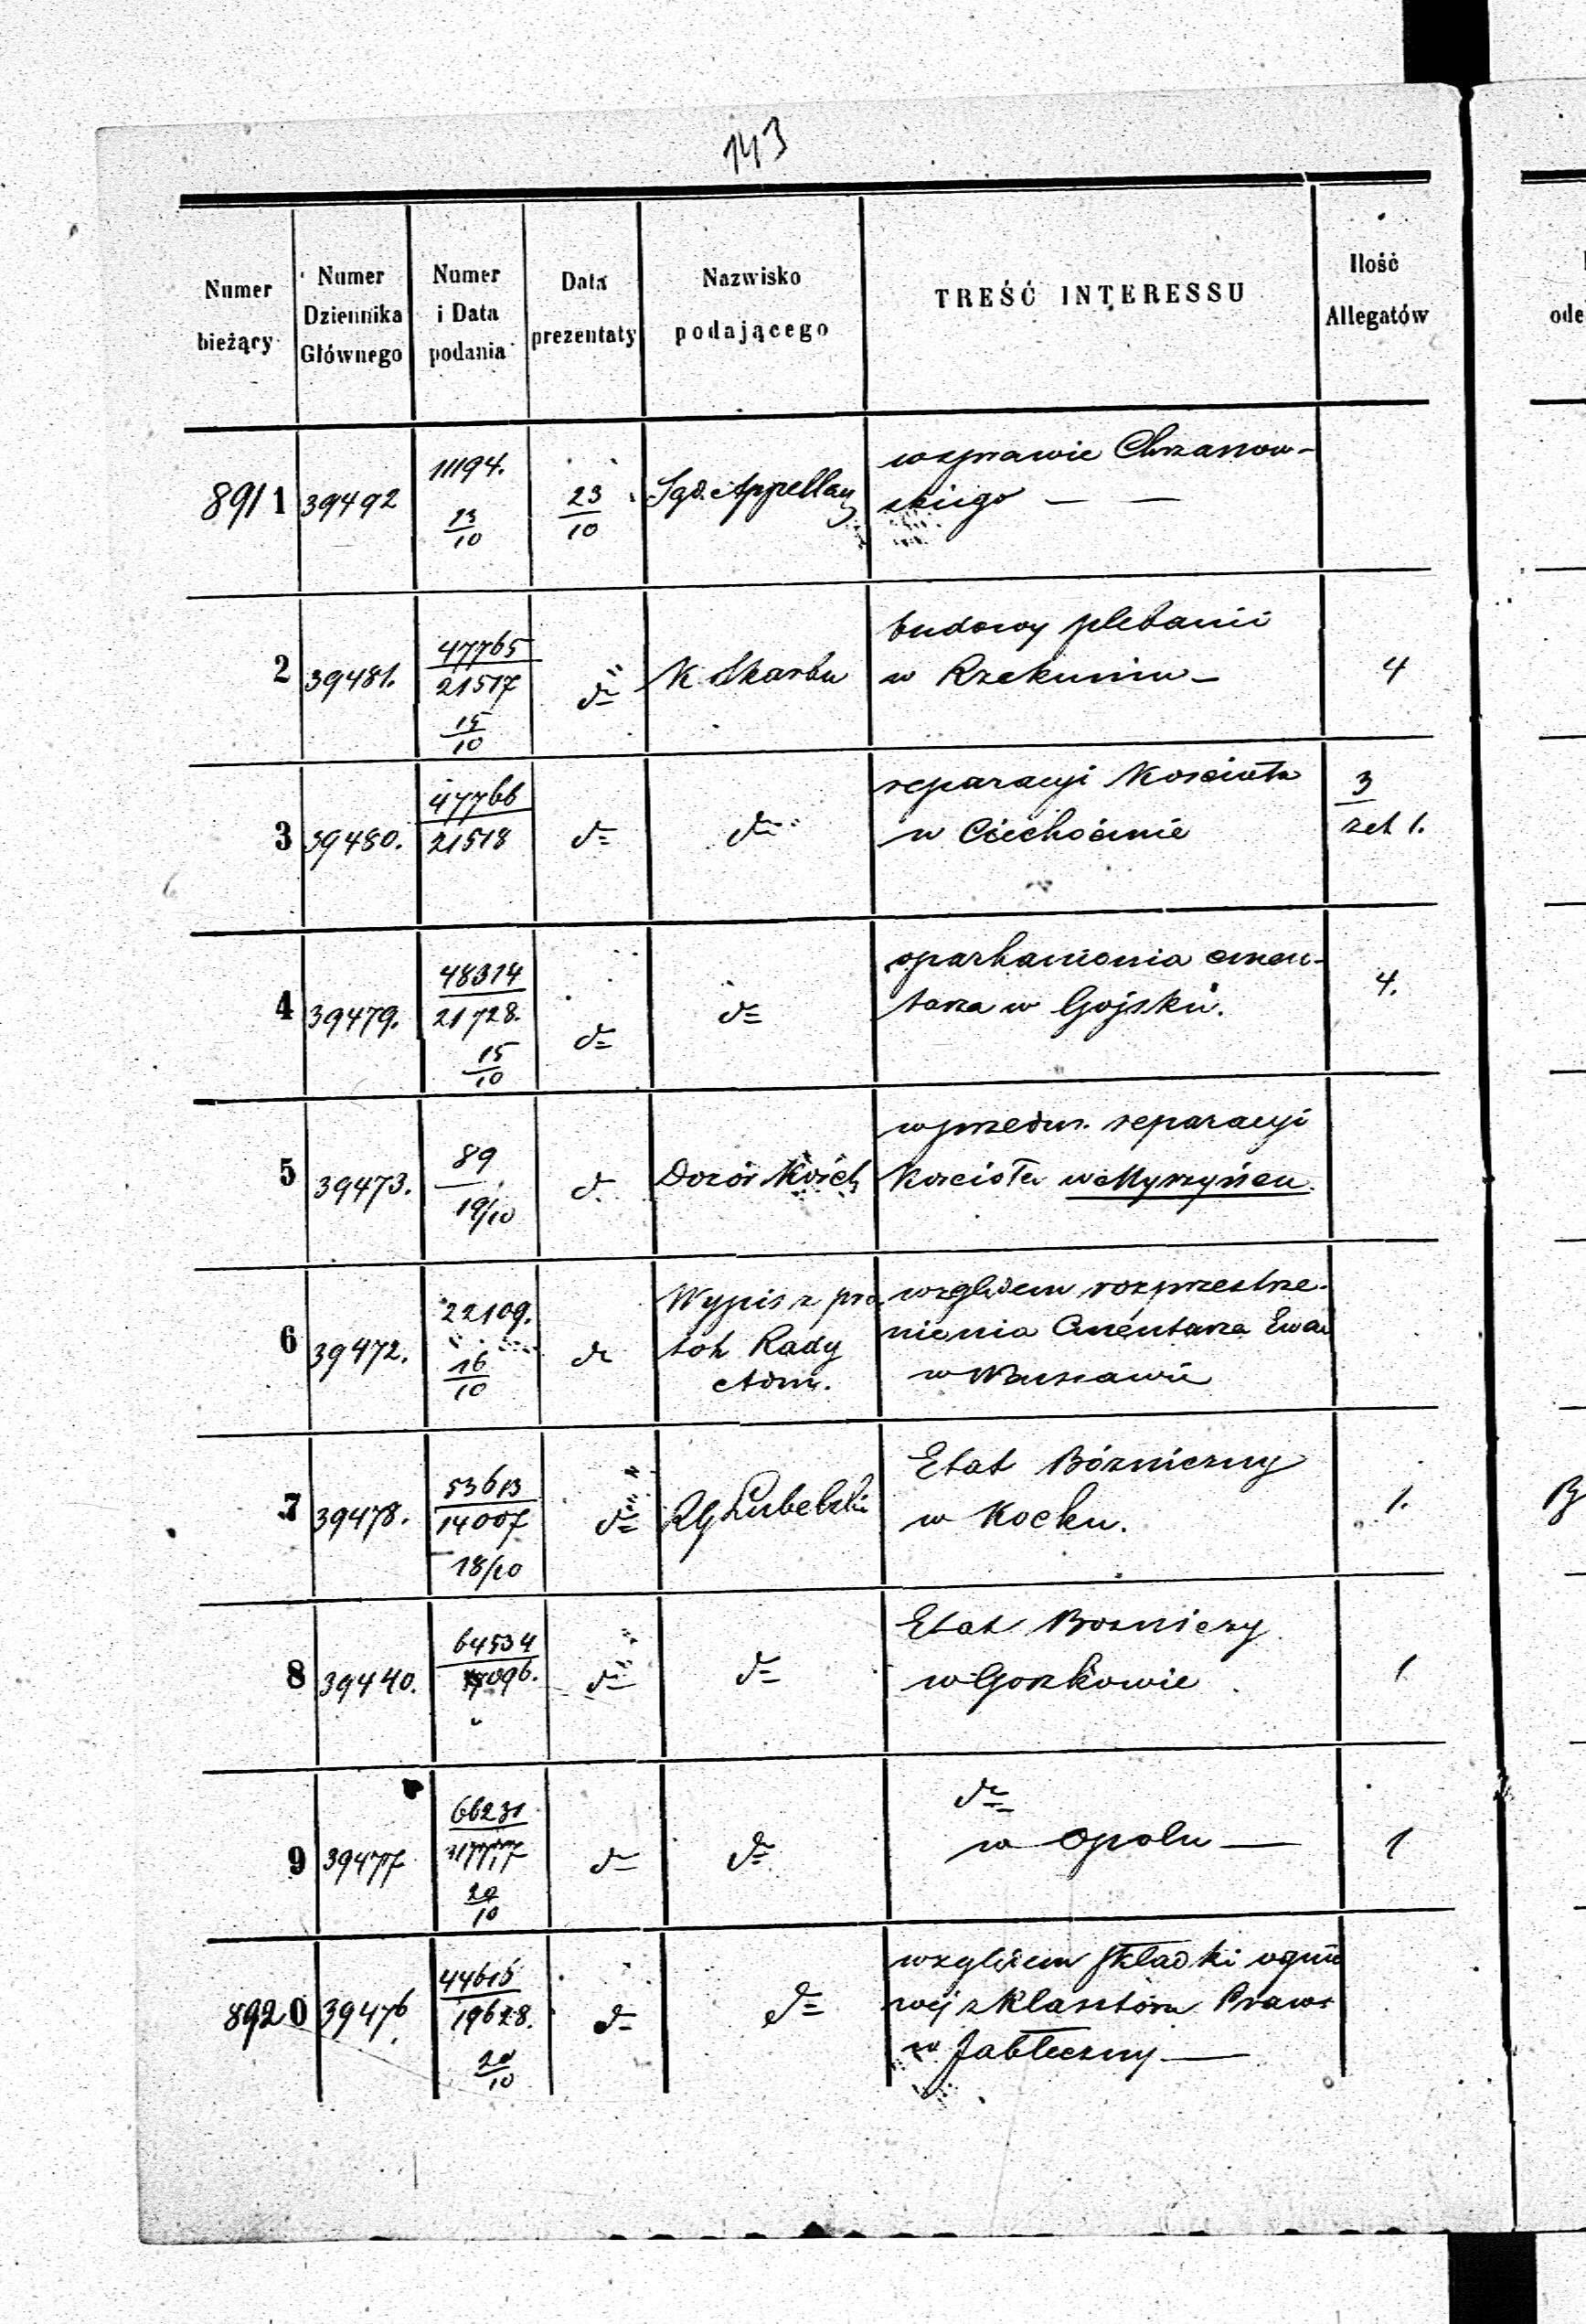 143
Numer bieżący
Numer Dziennika Głównego
Numer i Data podania
Data prezentaty
Nazwisko podającego
TREŚĆ INTERESSU
Ilość Allegatów
8911 39492 11194. 23/10 23/10 Sąd Appellacy w sprawie Chrzanow-
skiego — —
2 39481. 47765/21517 15/10 d= K Skarbu budowy plebanii
w Rzekuniu — 4
3 39480. 47766/21518 d= d= reparacyi Koscioła
w Ciechocinie 3/zet 1.
4 39479. 48314/21728. 15/10 d= d= oparkanienia cmen-
tarza w Gojsku. 4.
5 39473. 89 19/10 d. Dozór Kośch w przedm. reparacyi
Koscioła w Myszyńcu.
6 39472. 22109. 16/10 d= Wypis z pro względem rozprzestrze-
tok Rady nienia Cmentarza Ewan
Adm. w Warszawie
7 39478. 53613/14007 18/10 d= RG Lubelski Etat Bóżniczny
w Kocku. 1.
8 39440. 64534 d= d= Etat Bozniczy
w Gorzkowie 1
9 39477 66231 20/10 d= d= d=
w Opolu — 1
8920 39476 44615/19628. 20/10 d= d= względem składki ognio
wej z Klasztoru Praws
w Jabłeczny —
ode